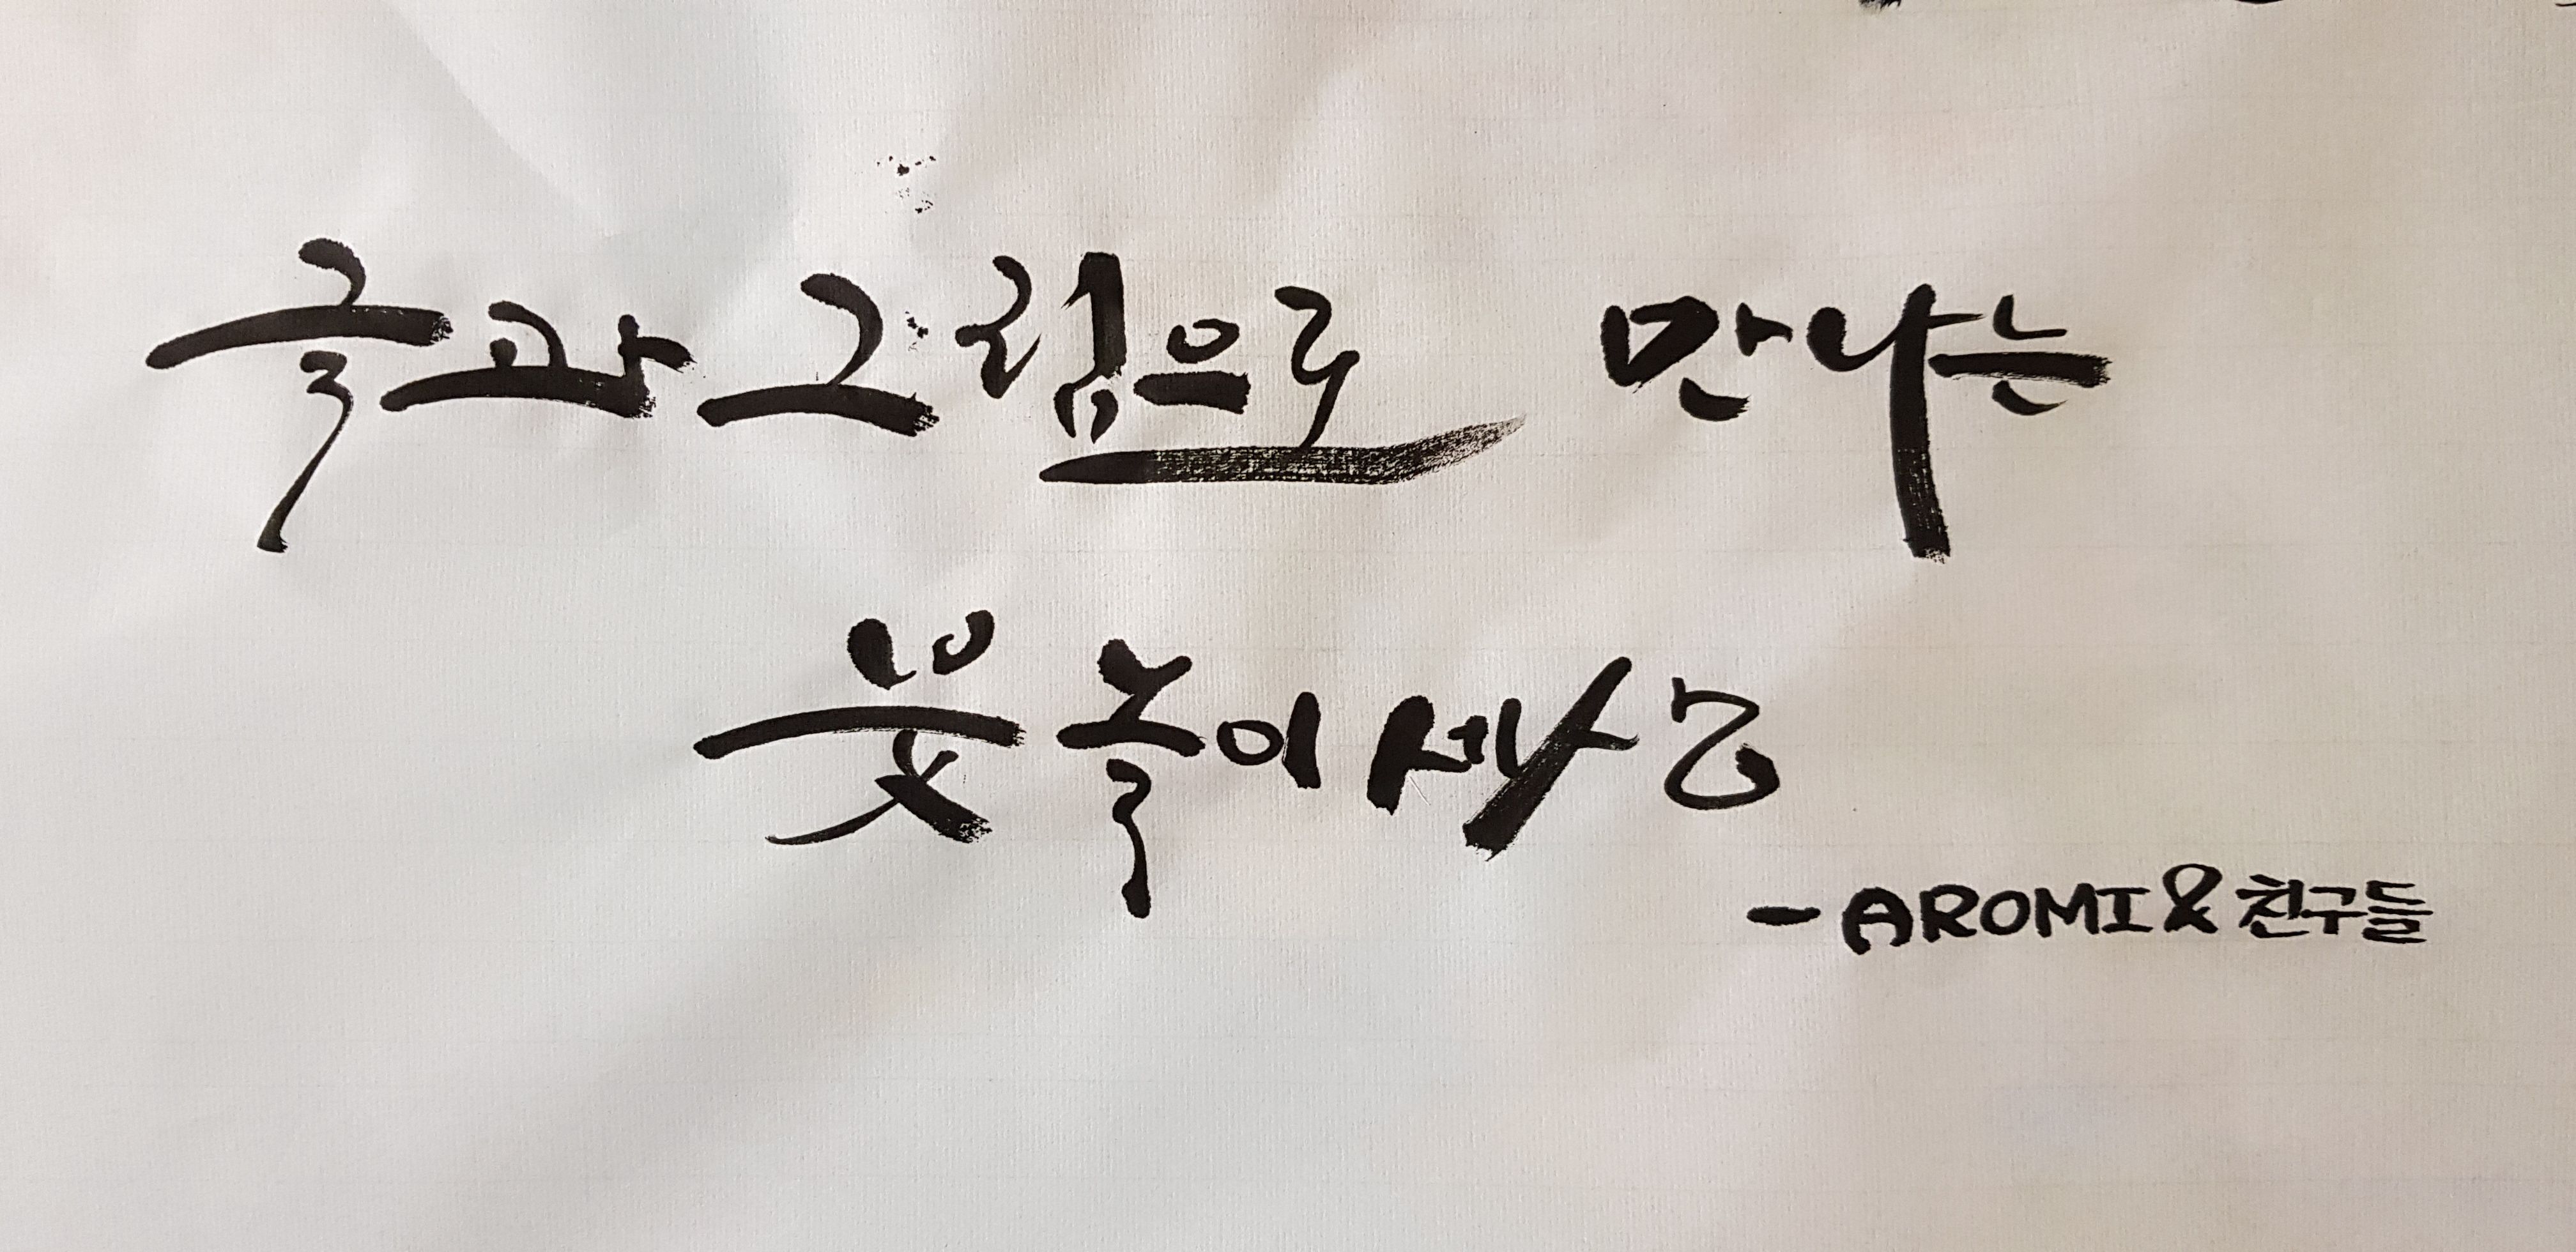 글과 그림으로 만나는
붓놀이 세상
- AROMI & 친구들